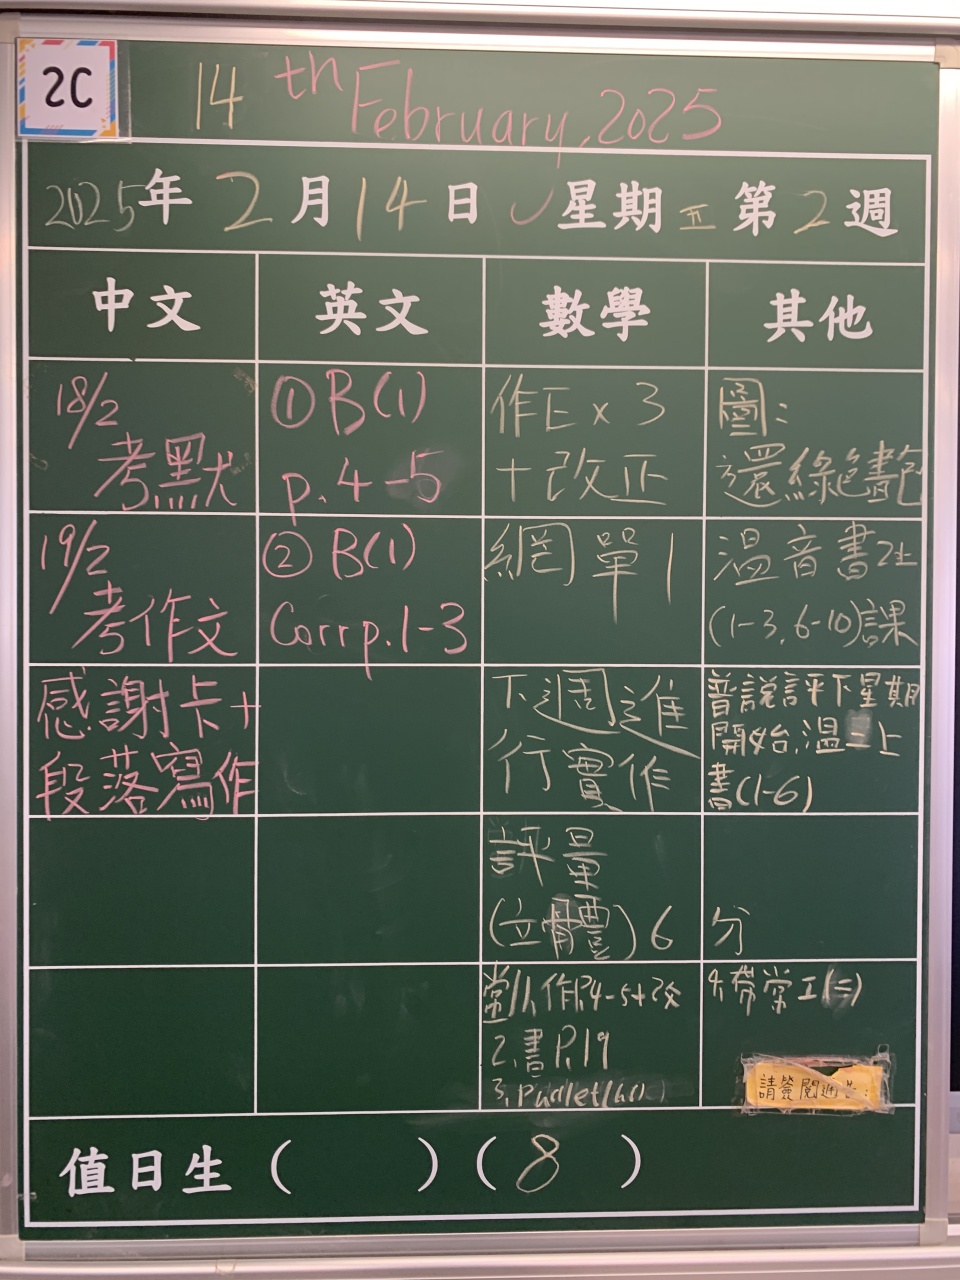 2C
14th February, 2025
2025年2月14日 星期五 第2週
中文 英文 數學 其他
18/2
考默
19/2
考作文
感謝卡+
段落寫作
①B(1)
p.4-5
② B(1)
Corr p.1-3
作E x 3
十改正
網單1
下週進
行實作
評量
(立體) 6分
堂1.作P.4-5+改
2.書P.19
3.
圖:
還綠色書包
溫音書2上
(1-3,6-10)課
普說評下星期
開始,溫二上
書(1-6)
4.帶常工(二)
請簽閱通告:
值日生 ( ) ( 8 )